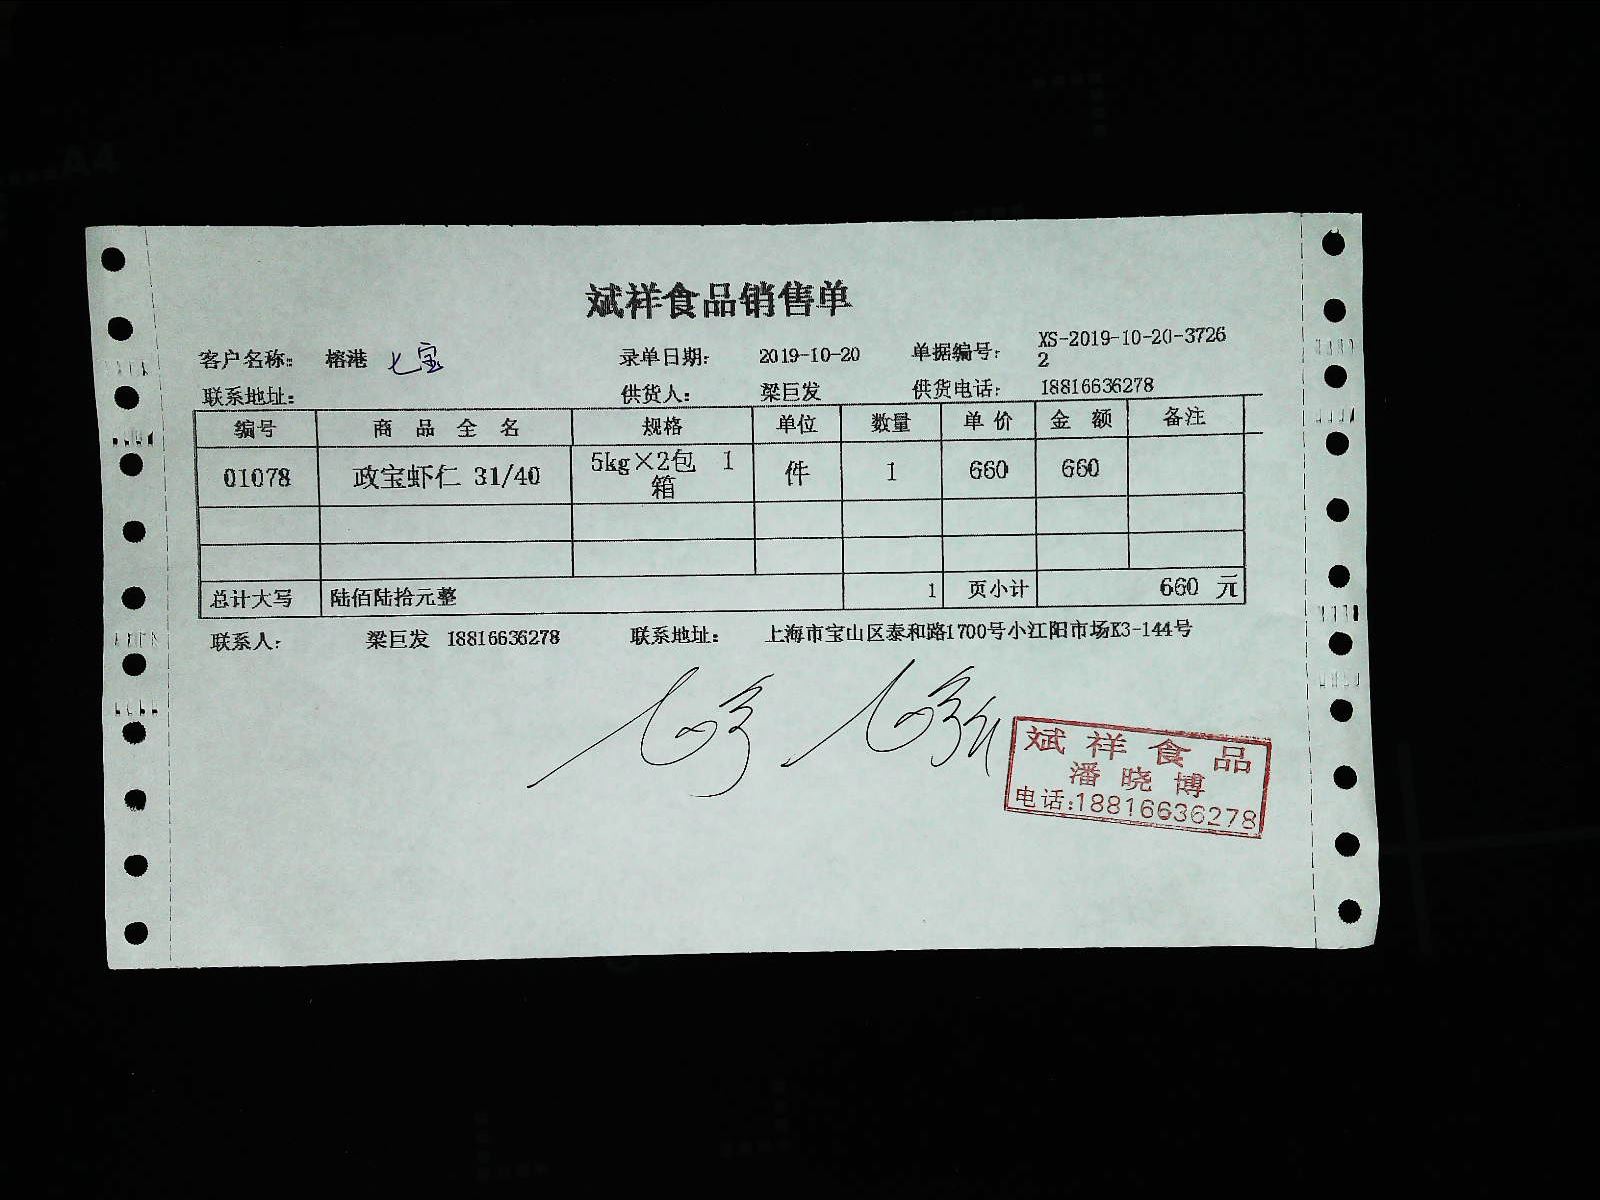 斌祥食品销售单
客户名称: 榕港 七宝 录单日期: 2019-10-20 单据编号: XS-2019-10-20-3726
2
联系地址: 供货人: 梁巨发 供货电话: 18816636278
编号 商 品 全 名 规格 单位 数量 单 价 金 额 备注
01078 政宝虾仁 31/40 5kg×2包 1 件 1 660 660
箱
总计大写 陆佰陆拾元整 1 页小计 660 元
联系人: 梁巨发 18816636278 联系地址: 上海市宝山区泰和路1700号小江阳市场K3-144号
斌祥食品
潘晓博
电话:18816636278